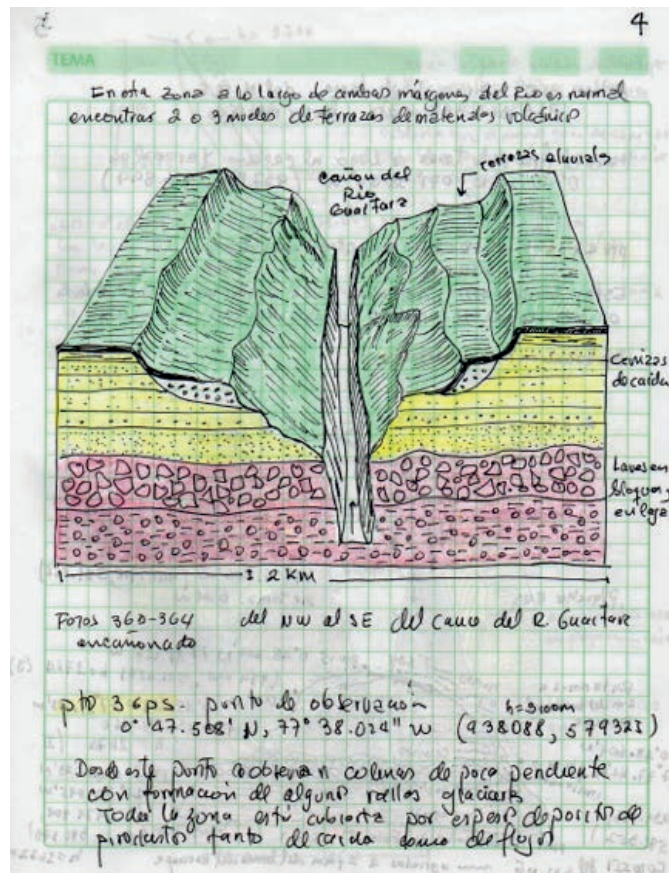 4
TEMA
En esta zona a lo largo de ambas márgenes del Rio es normal
encontrar 2 o 3 niveles de terrazas de materiales volcánico
Cañon del
Rio
Guaitara
terrazas aluviales
Cenizas
de caida
Lavas en
bloques
en laja
± 2 KM
Fotos 360-364 del NW al SE del cauce del R. Guaitara
encañonado
pto 36ps. punto de observación h=3100m
0° 47.508' N, 77° 38.024" W (938088, 579325)
Desde este punto se observan colinas de poca pendiente
con formación de algunos valles glaciares
Toda la zona está cubierta por espeso deposito de
piroclastos tanto de caida como de flujos